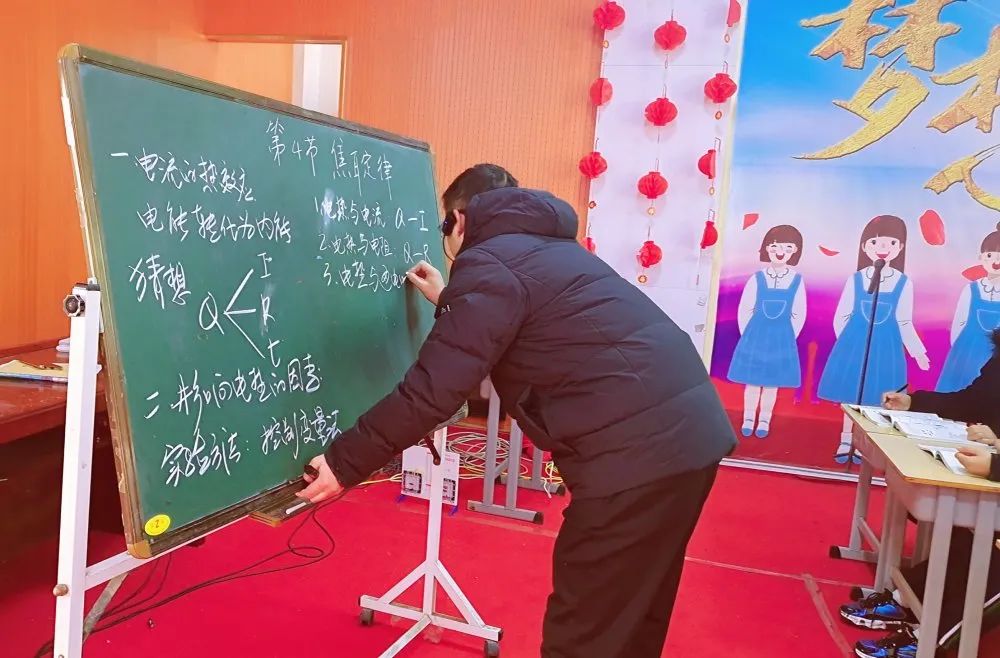 第4节 焦耳定律
一 电流的热效应
电能转化为内能
猜想
Q
I
R
t
二 影响电热的因素
实验方法:控制变量法
1.电热与电流 Q-I
2.电热与电阻: Q-R
3.电热与
梦想
2